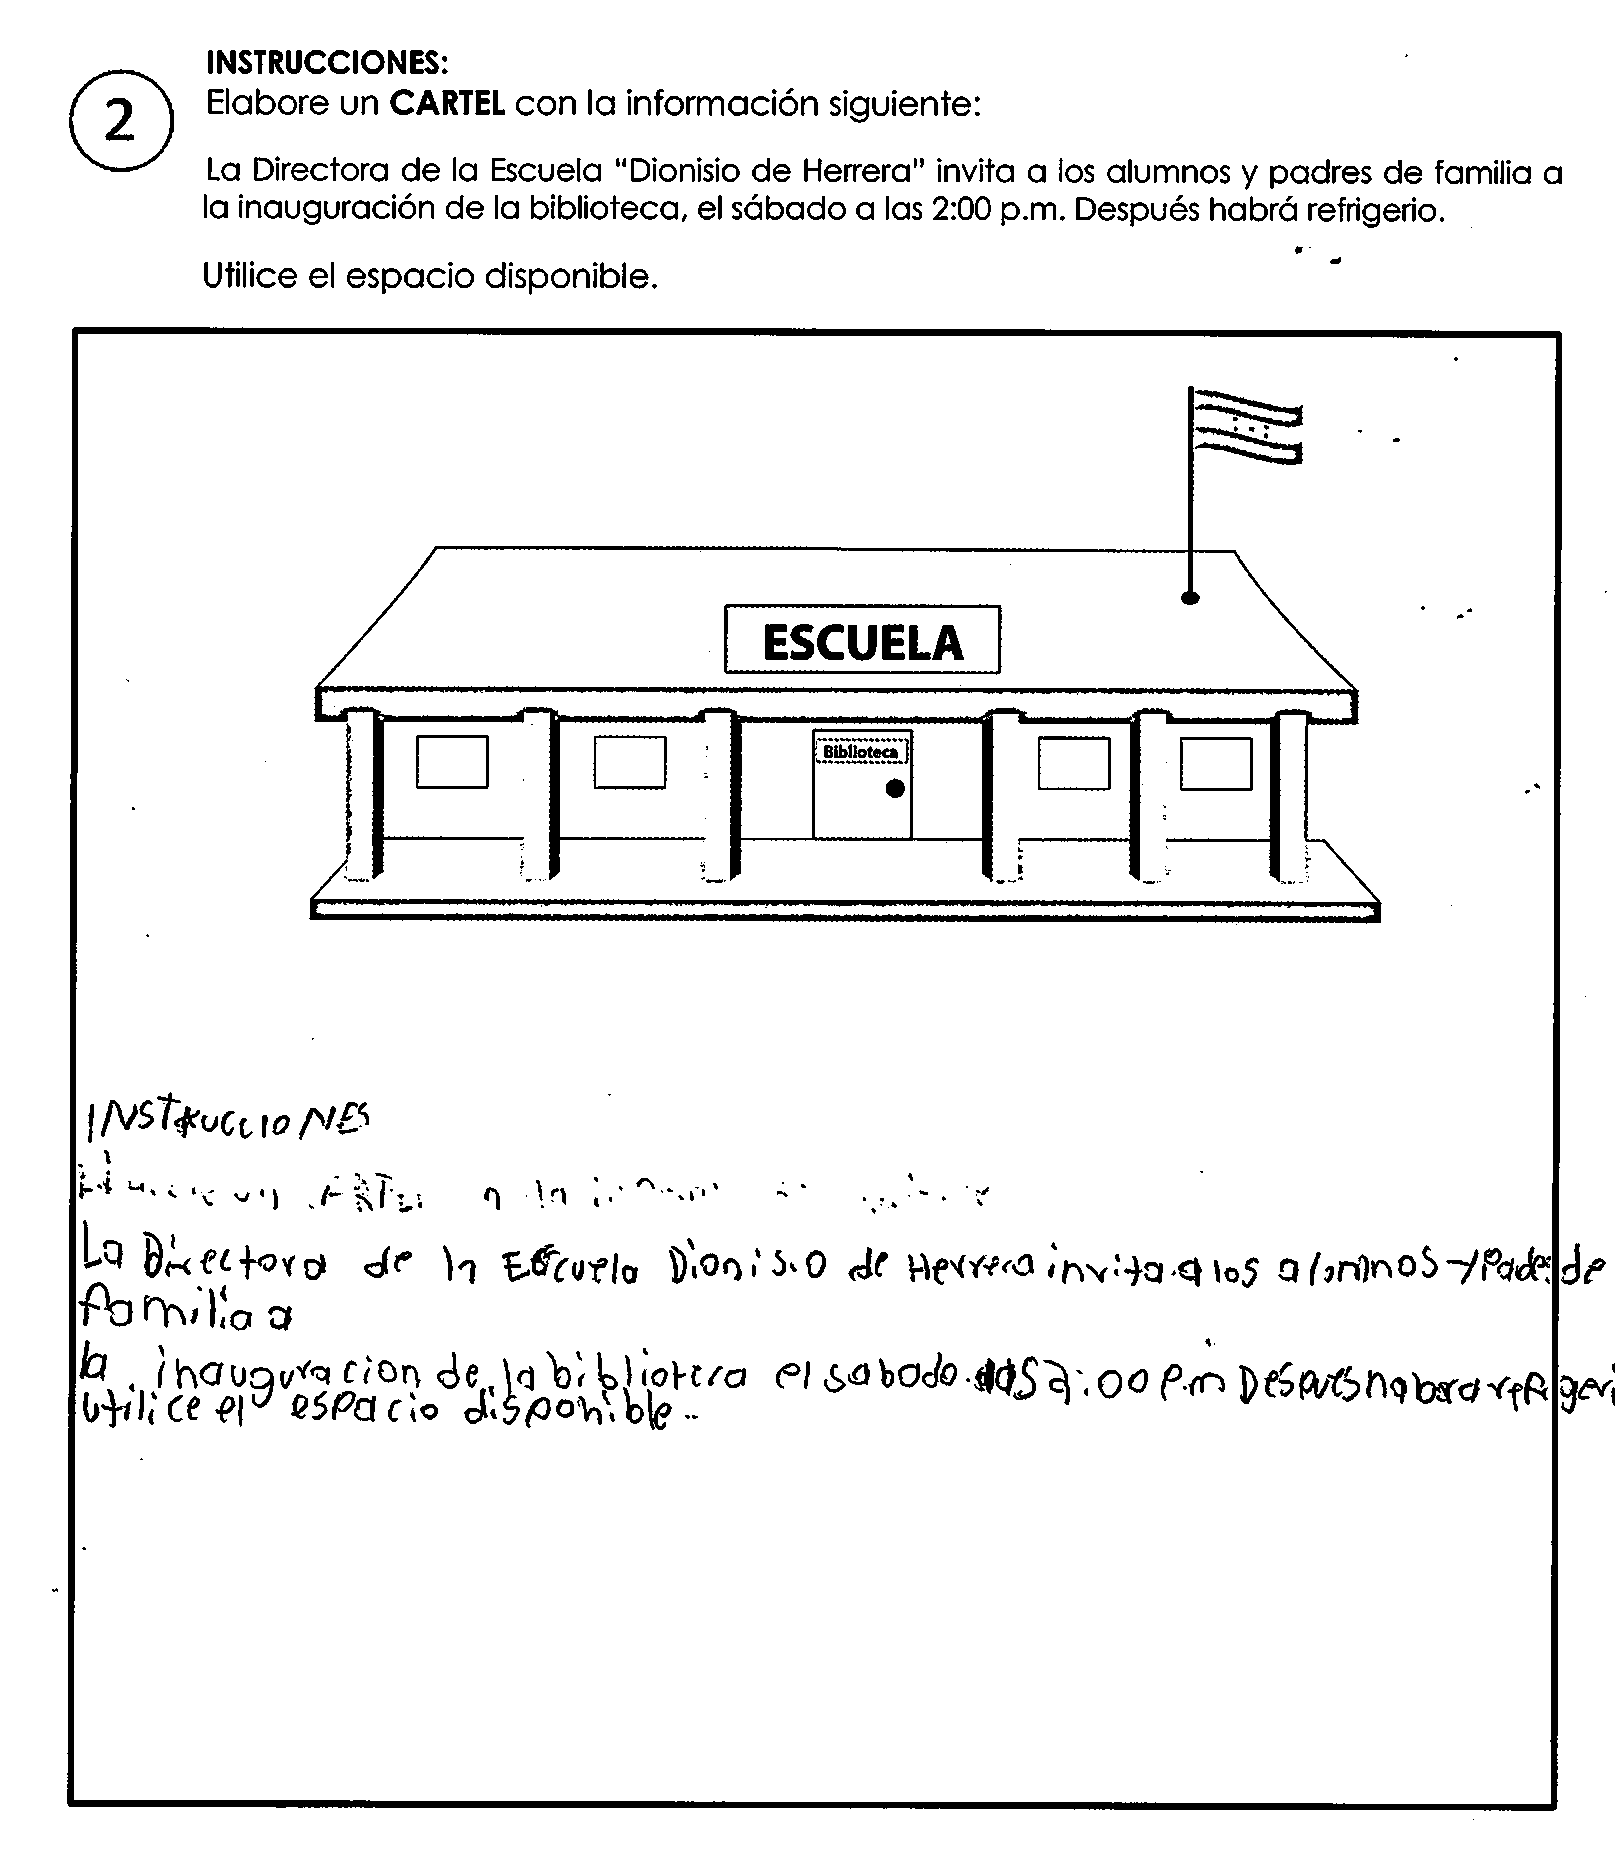 INSTRUCCIONES:
2
Elabore un CARTEL con la información siguiente:
La Directora de la Escuela "Dionisio de Herrera" invita a los alumnos y padres de familia a
la inauguración de la biblioteca, el sábado a las 2:00 p.m. Después habrá refrigerio.
Utilice el espacio disponible.
ESCUELA
Biblioteca
INSTRUCCIONES
un la
La Directora de la Escuela Dionisio de Herrera invita a los alumnos y Pades de
familia a
la inauguracion de la biblioteca el sabado alas 2:00 p.m Despues habra refrigeri
utilice el espacio disponible..